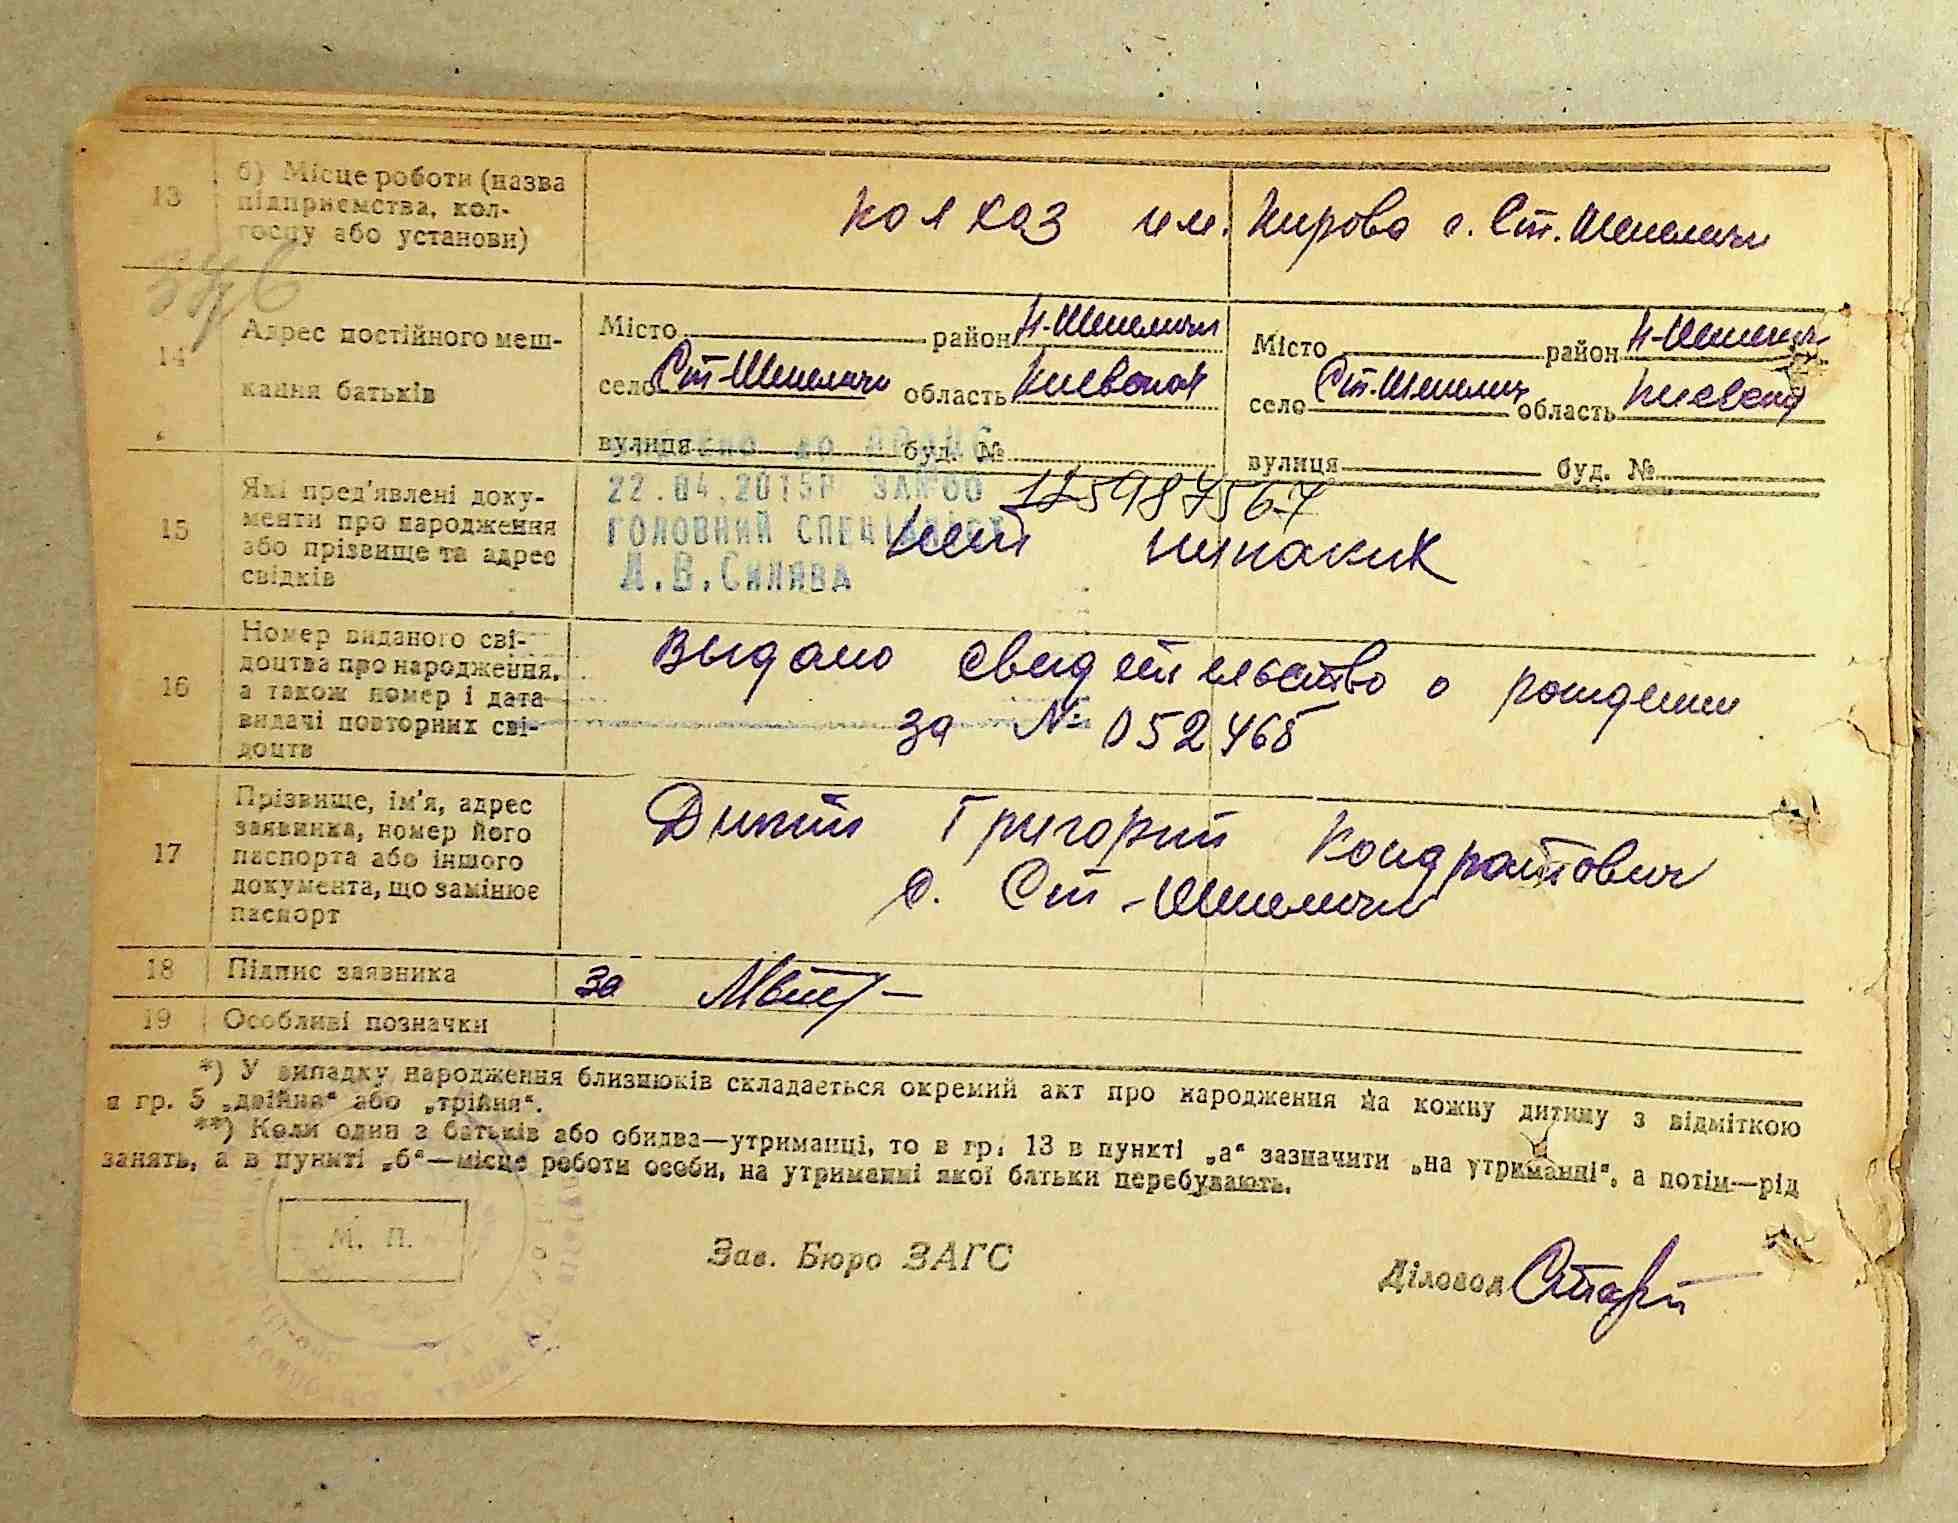 13
б) Місце роботи (назва
підприємства, кол-
госпу або установи)
колхоз им. Кирова с. Ст. Шепеличи
14
Адрес постійного меш-
кання батьків
Місто район Н-Шепеличи
село Ст-Шепеличи область Киевская
вулиця буд. №
Місто район Н-Шепелич
село Ст-Шепелич область Киевская
вулиця буд. №
15
Які пред'явлені доку-
менти про народження
або прізвище та адрес
свідків
до ДРАЦС
22.04.2015Р ЗА №00 1259874567
ГОЛОВНИЙ СПЕЦІАЛІСТ
Д.В.Силява
нет никаких
16
Номер виданого сві-
доцтва про народження,
а також номер і дата
видачі повторних сві-
доцтв
Выдано свидетельство о рождении
за № 052465
17
Прізвище, ім'я, адрес
заявника, номер його
паспорта або іншого
документа, що замінює
паспорт
Дикий Григорий Кондратович
с. Ст-Шепеличи
18
Підпис заявника
за
19
Особливі позначки
*) У випадку народження близнюків складається окремий акт про народження на кожну дитину з відміткою
в гр. 5 „двійня“ або „трійня“.
**) Коли один з батьків або обидва—утриманці, то в гр. 13 в пункті „а“ зазначити „на утриманні“, а потім—рід
занять, а в пункті „б“—місце роботи особи, на утриманні якої батьки перебувають.
М. П.
Зав. Бюро ЗАГС
Діловод